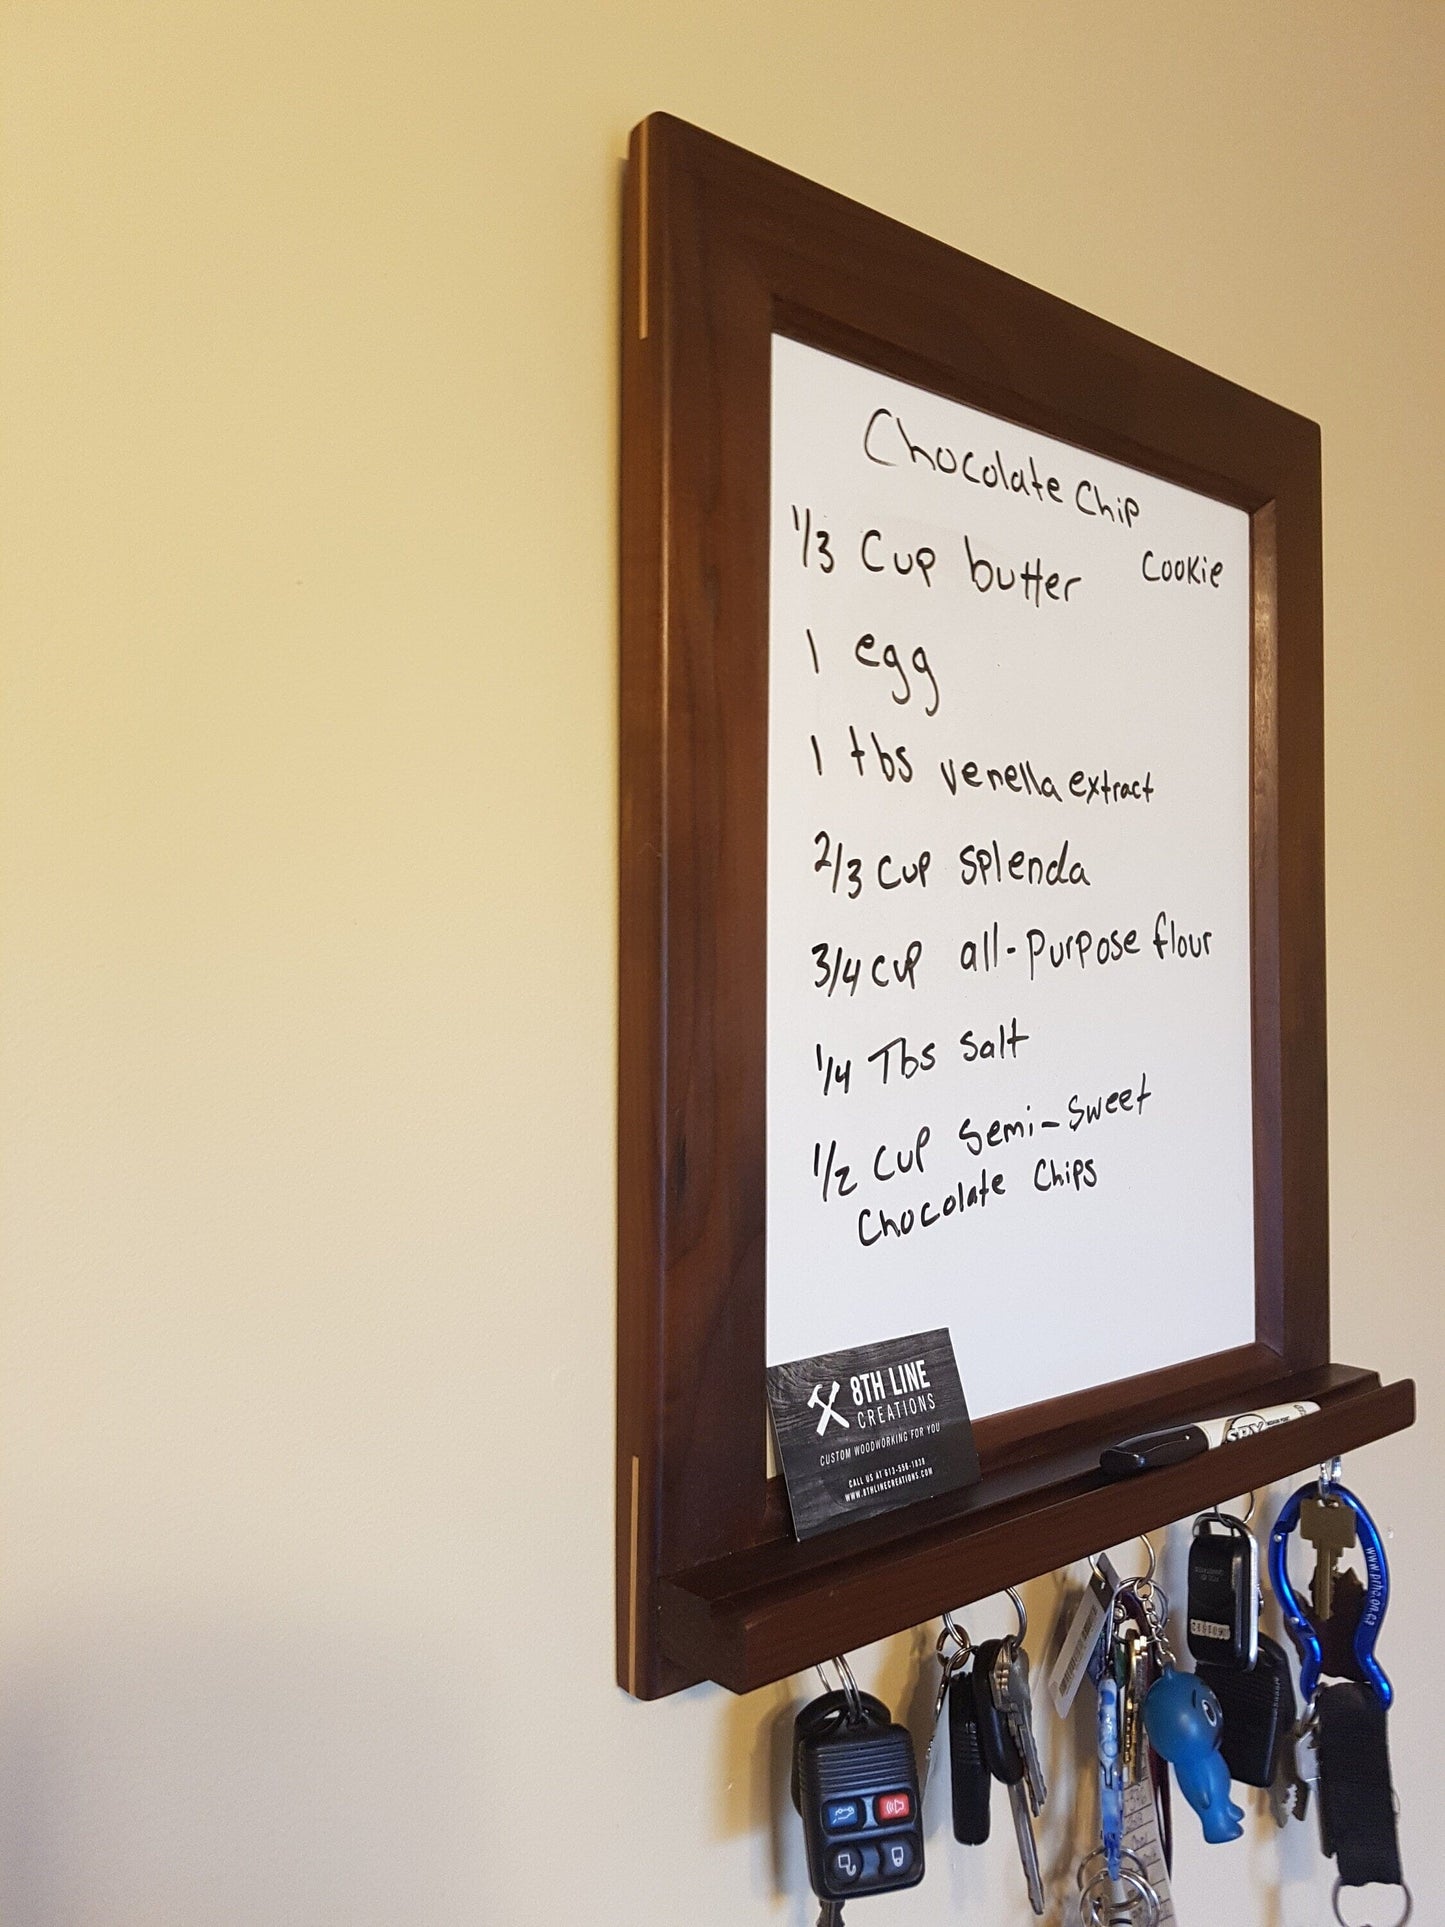 Chocolate Chip
Cookie
1/3 Cup butter
1 egg
1 tbs venella extract
2/3 cup splenda
3/4 cup all-purpose flour
1/4 Tbs salt
1/2 cup semi-sweet
Chocolate Chips
8TH LINE
CREATIONS
CUSTOM WOODWORKING FOR YOU
CALL US AT 613-556-1838
WWW.8THLINECREATIONS.COM